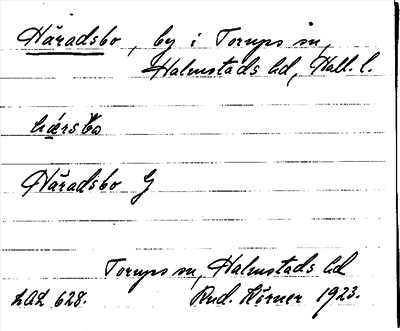 Häradsbo, by i Torups sn,
Halmstads hd, Hall. l.
hǽrsbo
Häradsbo G
Torups sn, Halmstads hd
LAL 628. Rud. Körner 1923.